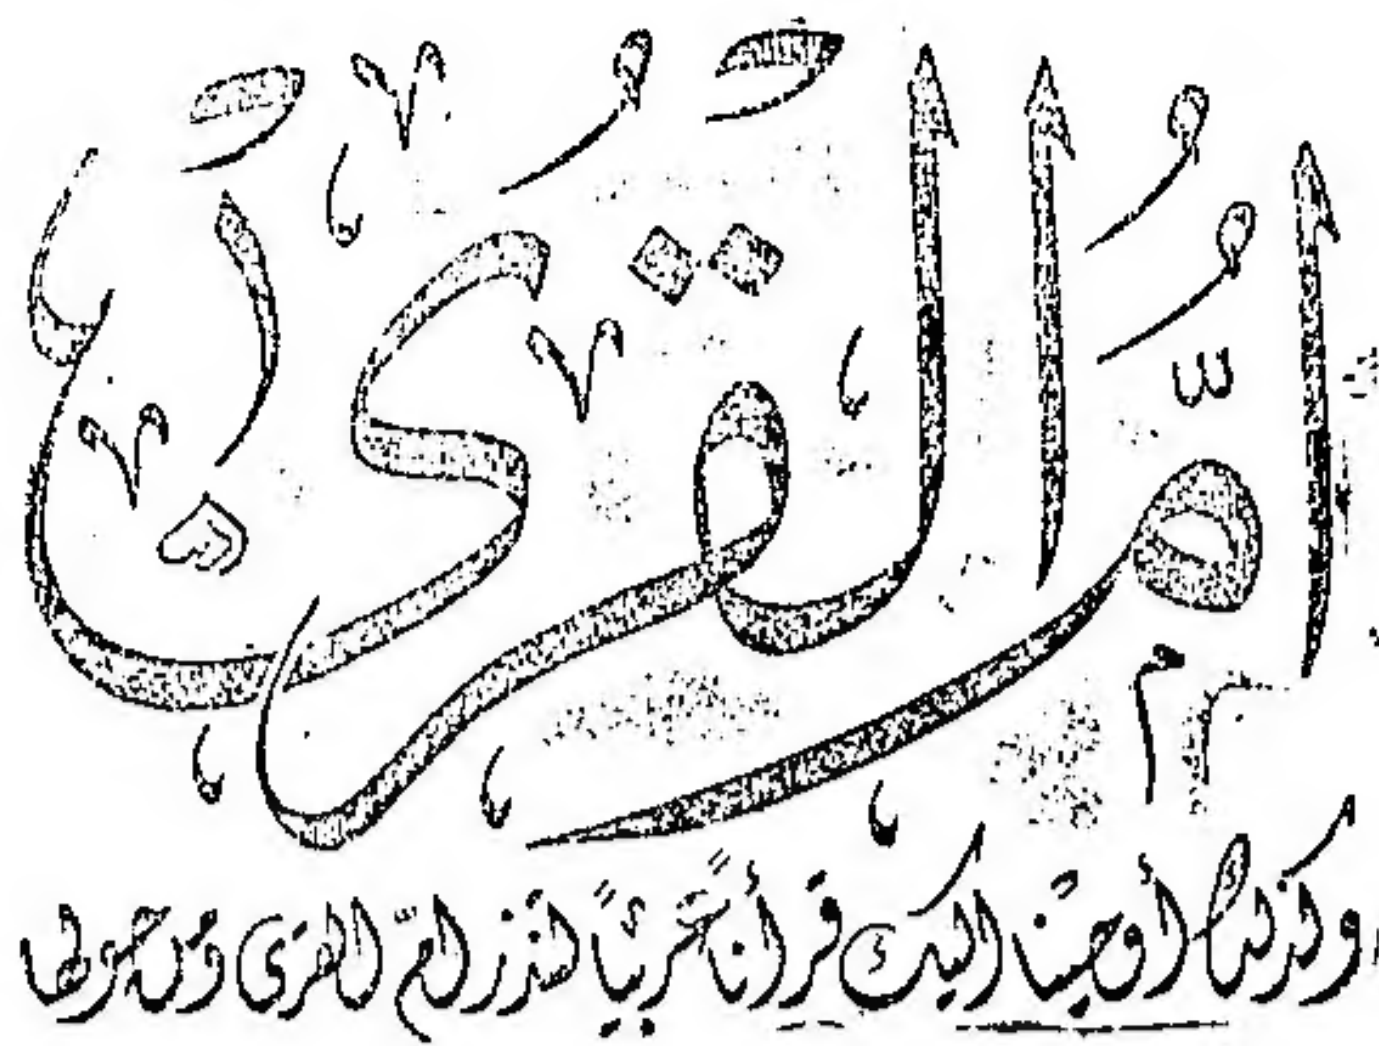 أم القرى
وكذلك أوحينا اليك قرأناً عربياً لتنذر امّ القرى ومن حولها